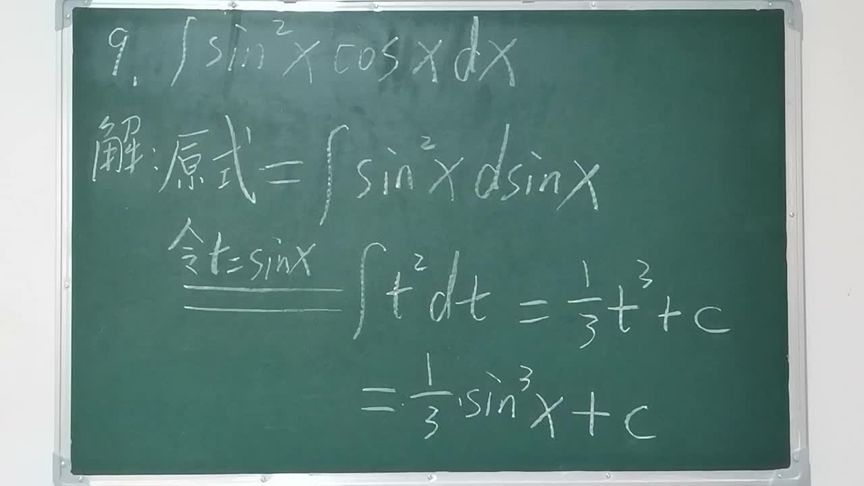 9. ∫sin²x cosxdx
解:原式=∫sin²xdsinx
令t=sinx ∫t²dt = 1/3 t³+c
= 1/3 sin³x+c